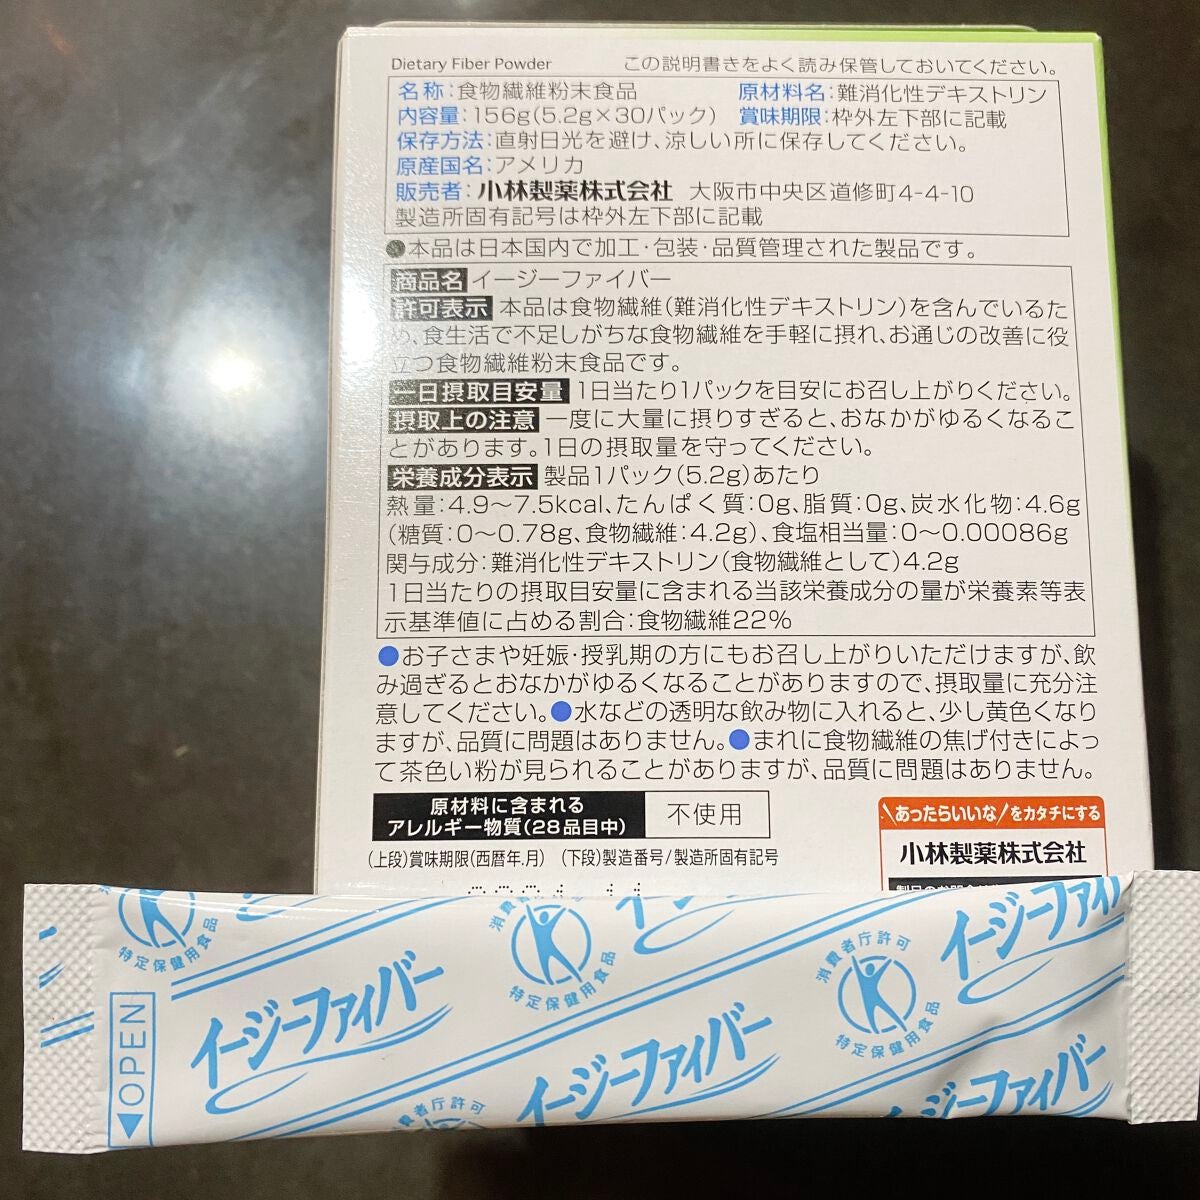 Dietary Fiber Powder この説明書きをよく読み保管しておいてください。
名称:食物繊維粉末食品 原材料名:難消化性デキストリン
内容量:156g(5.2g×30パック) 賞味期限:枠外左下部に記載
保存方法:直射日光を避け、涼しい所に保存してください。
原産国名:アメリカ
販売者:小林製薬株式会社 大阪市中央区道修町4-4-10
製造所固有記号は枠外左下部に記載
●本品は日本国内で加工・包装・品質管理された製品です。
商品名 イージーファイバー
許可表示 本品は食物繊維(難消化性デキストリン)を含んでいるた
め、食生活で不足しがちな食物繊維を手軽に摂れ、お通じの改善に役
立つ食物繊維粉末食品です。
一日摂取目安量 1日当たり1パックを目安にお召し上がりください。
摂取上の注意 一度に大量に摂りすぎると、おなかがゆるくなるこ
とがあります。1日の摂取量を守ってください。
栄養成分表示 製品1パック(5.2g)あたり
熱量:4.9〜7.5kcal、たんぱく質:0g、脂質:0g、炭水化物:4.6g
(糖質:0〜0.78g、食物繊維:4.2g)、食塩相当量:0〜0.00086g
関与成分:難消化性デキストリン(食物繊維として)4.2g
1日当たりの摂取目安量に含まれる当該栄養成分の量が栄養素等表
示基準値に占める割合:食物繊維22%
●お子さまや妊娠・授乳期の方にもお召し上がりいただけますが、飲
み過ぎるとおなかがゆるくなることがありますので、摂取量に充分注
意してください。●水などの透明な飲み物に入れると、少し黄色くなり
ますが、品質に問題はありません。●まれに食物繊維の焦げ付きによっ
て茶色い粉が見られることがありますが、品質に問題はありません。
原材料に含まれる
アレルギー物質(28品目中) 不使用
(上段)賞味期限(西暦年.月) (下段)製造番号/製造所固有記号
\あったらいいな/をカタチにする
小林製薬株式会社
特定保健用食品
消費者庁許可
特定保健用食品
消費者庁許可
特定保健用食品
イージーファイバー
イージーファイバー
イージーファイバー
イージーファイバー
者庁許可
◀OPEN